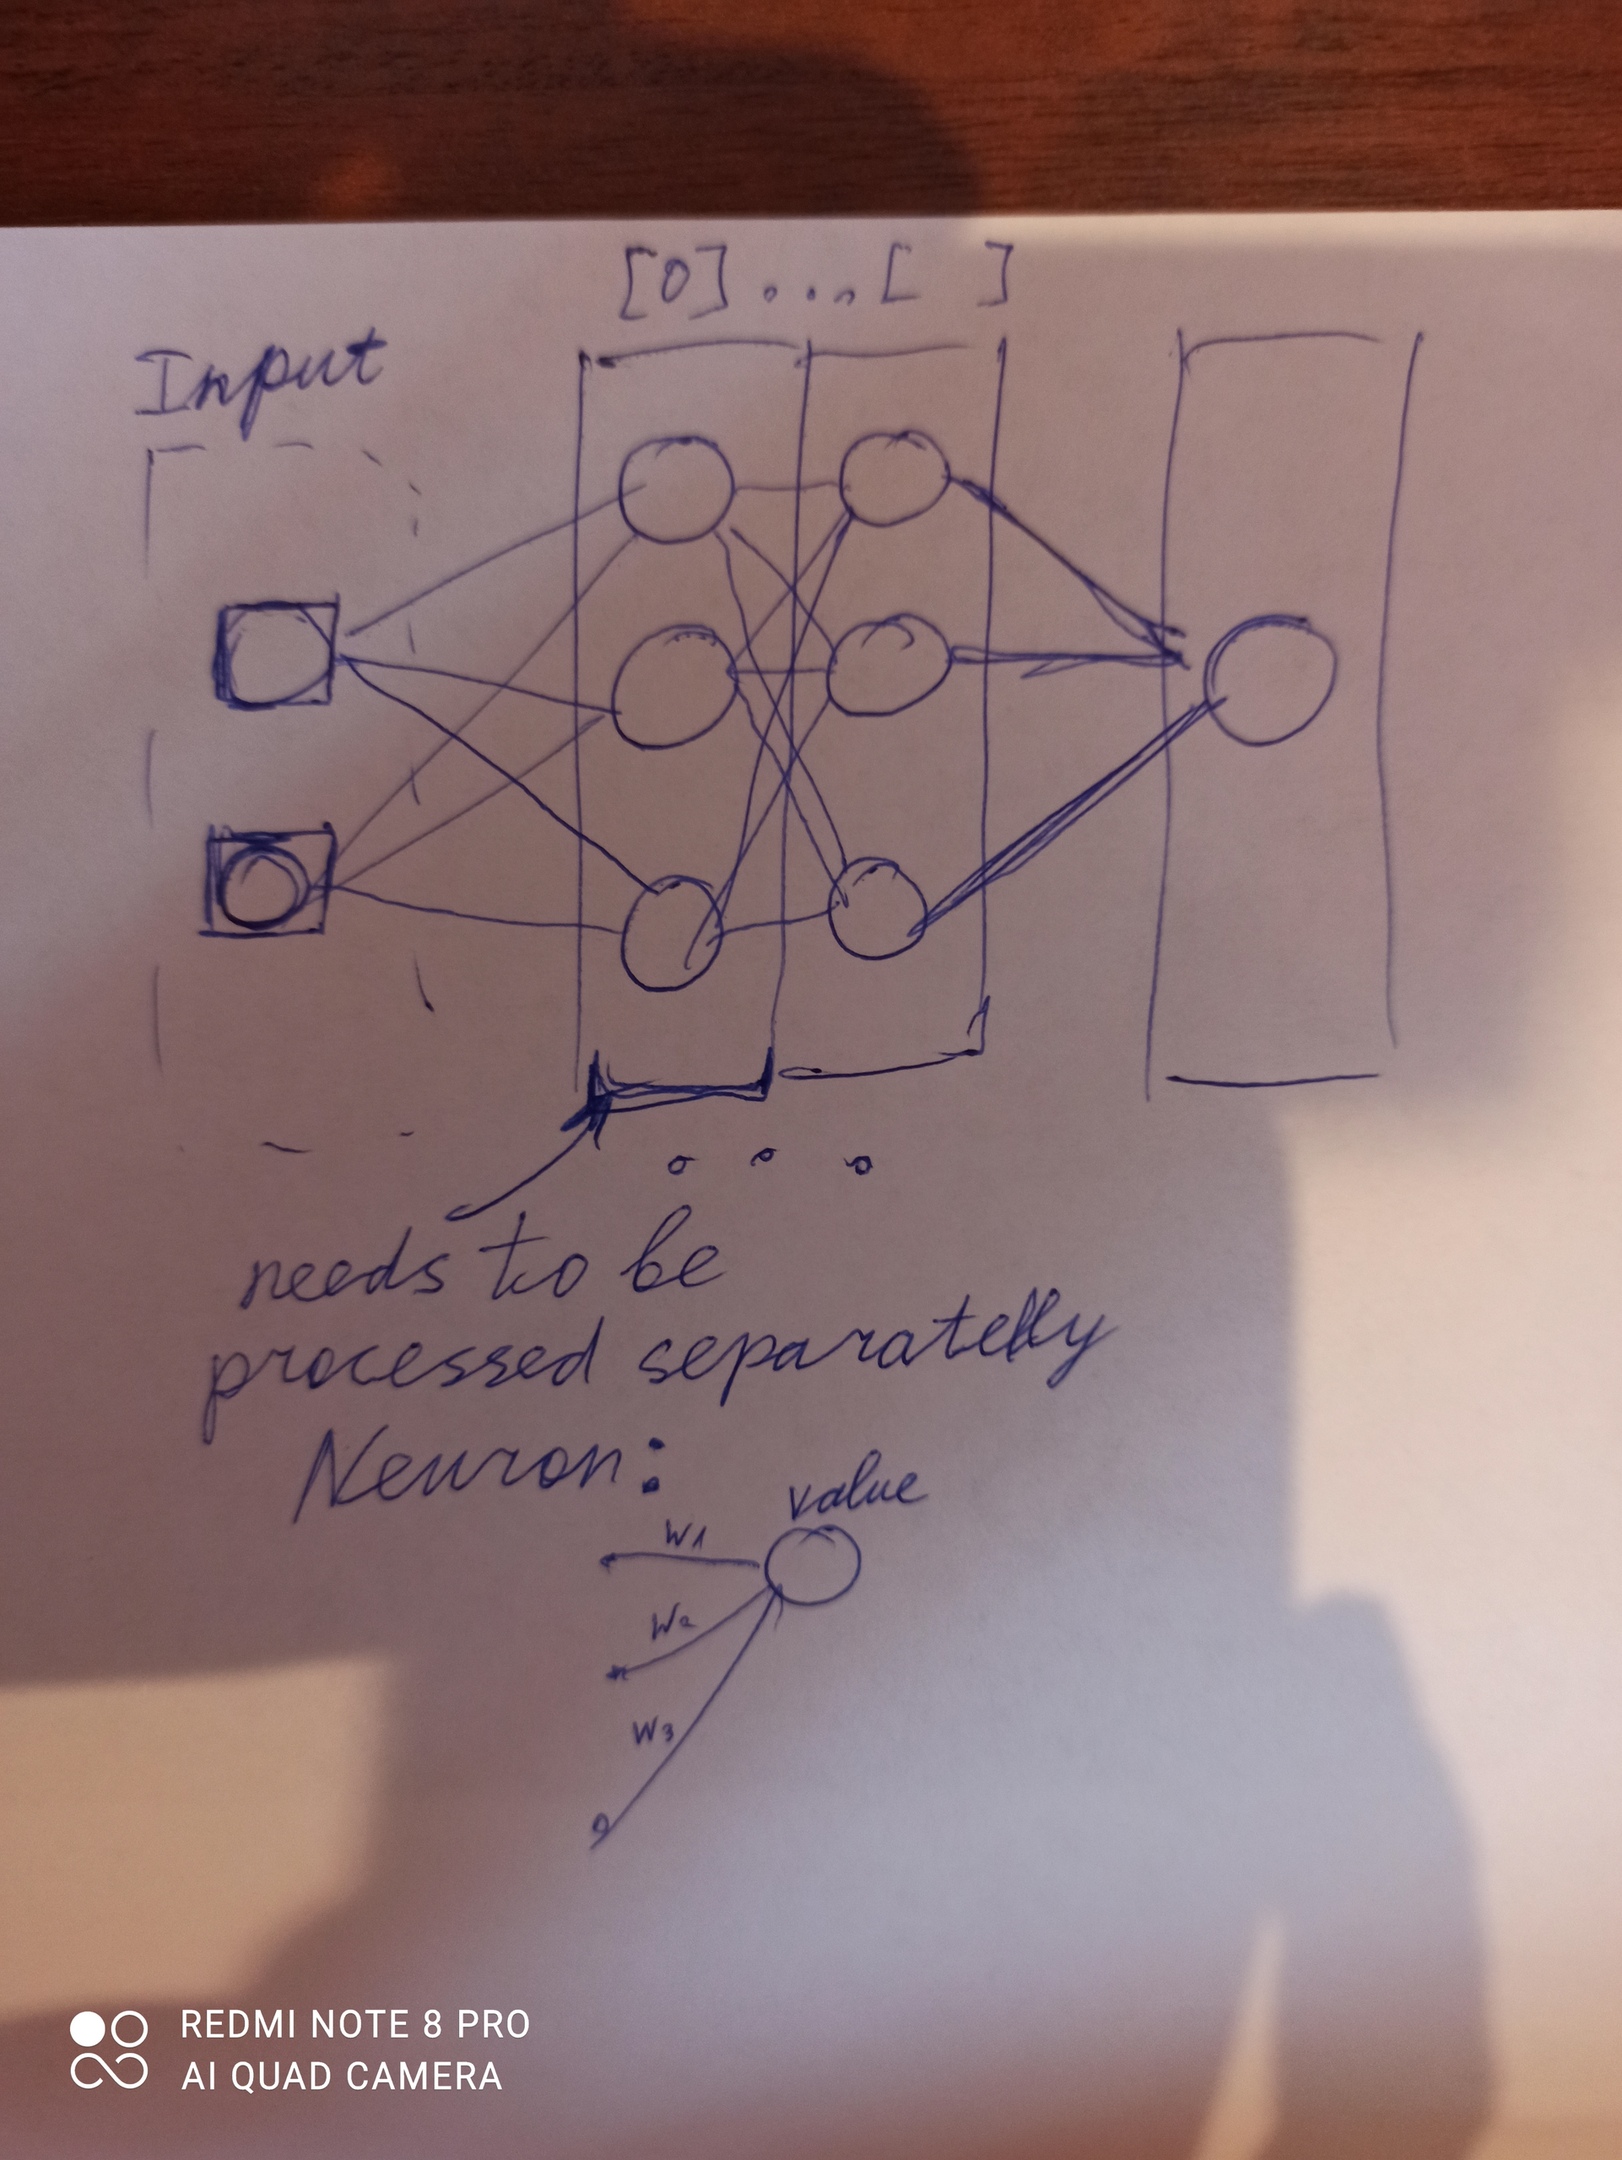 [0]...[ ]
Input
needs to be
processed separatelly
Neuron:
value
W1
W2
W3
REDMI NOTE 8 PRO
AI QUAD CAMERA